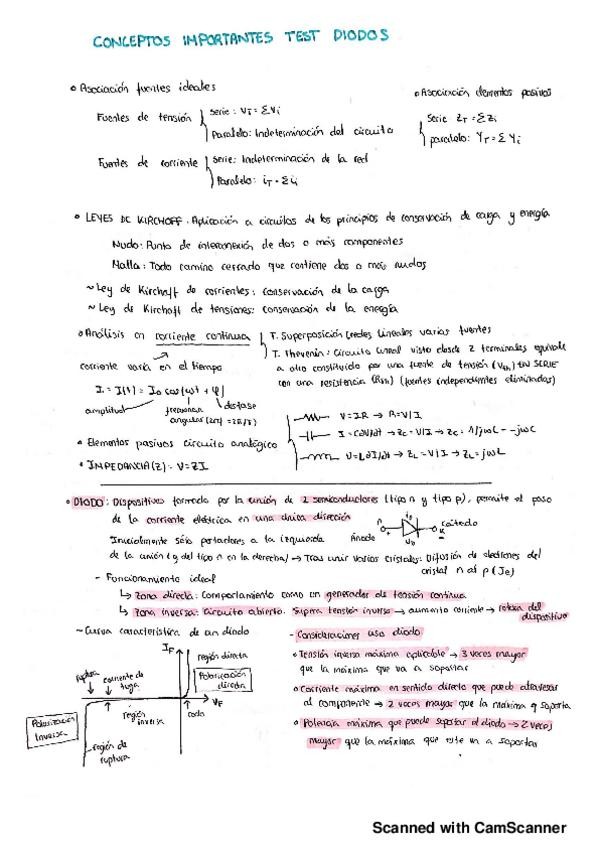 CONCEPTOS IMPORTANTES TEST DIODOS
• Asociación fuentes ideales
Fuentes de tensión
Serie: VT = ΣVi
Paralelo: Indeterminación del circuito
Fuentes de corriente
Serie: Indeterminación de la red
Paralelo: iT = Σii
• Asociación elementos pasivos
Serie ZT = ΣZi
paralelo: YT = ΣYi
• LEYES DE KIRCHOFF. Aplicación a circuitos de los principios de conservación de carga y energía
Nudo: Punto de interconexión de dos o más componentes
Malla: Todo camino cerrado que contiene dos o más nudos
~ Ley de Kirchoff de corrientes: conservación de la carga
~ Ley de Kirchoff de tensiones: conservación de la energía
• Análisis en corriente continua
T. Superposición (redes lineales varias fuentes
T. Thevenin: Circuito lineal visto desde 2 terminales equivale
a otro constituido por una fuente de tensión (Vth) EN SERIE
con una resistencia (Rth) (fuentes independientes eliminadas)
corriente varía en el tiempo
I = I(t) = Io cos(ωt + φ)
amplitud
frecuencia angular (2πf) = 2π/T)
desfase
• Elementos pasivos circuito analógico
V = IR → R = V/I
I = CdV/dt → Zc = V/I → Zc = 1/jωC = -jωC
U = LdI/dt → ZL = V/I → ZL = jωL
• IMPEDANCIA (Z) = V = ZI
• DIODO: Dispositivos formado por la unión de 2 semiconductores (tipo n y tipo p), permite el paso
de la corriente eléctrica en una única dirección
Ánodo
cátodo
Inicialmente sólo portadores a la izquierda
de la unión (y del tipo n en la derecha) → Tras unir varios cristales: Difusión de electrones del
cristal n al p (Je)
- Funcionamiento ideal
↳ Zona directa: Comportamiento como un generador de tensión continua
↳ Zona inversa: Circuito abierto. Supera tensión inversa → aumento corriente → rotura del dispositivo
- Curva característica de un diodo
IF
región directa
Polarización directa
ruptura
corriente de fuga
VF
región inversa
codo
Polarización Inversa
región de ruptura
- Consideraciones uso diodo
• Tensión inversa máxima aplicable → 3 veces mayor
que la máxima que va a soportar
• Corriente máxima en sentido directo que puede atravesar
al componente → 2 veces mayor que la máxima q soporta
• Potencia máxima que puede soportar el diodo → 2 veces
mayor que la máxima que este va a soportar
Scanned with CamScanner